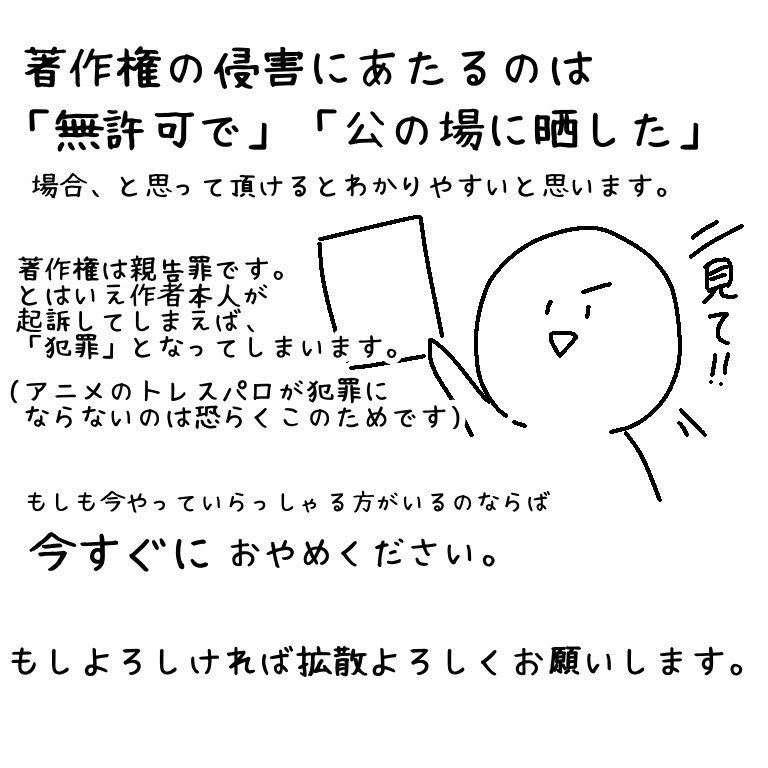 著作権の侵害にあたるのは
「無許可で」「公の場に晒した」
場合、と思って頂けるとわかりやすいと思います。
著作権は親告罪です。
とはいえ作者本人が
起訴してしまえば、
「犯罪」となってしまいます。
(アニメのトレスパロが犯罪に
ならないのは恐らくこのためです)
見て!!
もしも今やっていらっしゃる方がいるのならば
今すぐに おやめください。
もしよろしければ拡散よろしくお願いします。